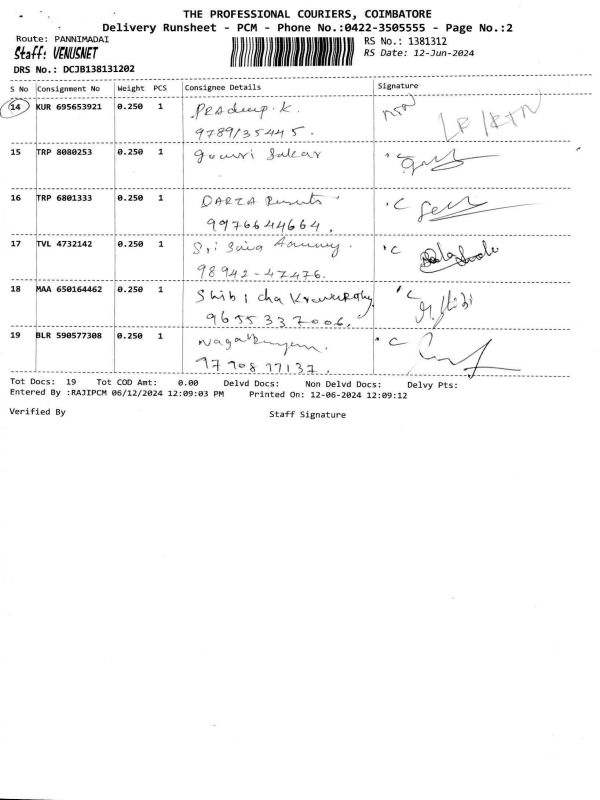 THE PROFESSIONAL COURIERS, COIMBATORE
Delivery Runsheet - PCM - Phone No.:0422-3505555 - Page No.:2
Route: PANNIMADAI
RS No.: 1381312
Staff: VENUSNET
RS Date: 12-Jun-2024
DRS No.: DCJB138131202
S No Consignment No Weight PCS Consignee Details Signature
14 KUR 695653921 0.250 1 Pradeep.K.
9789135445.
15 TRP 8080253 0.250 1 gowri Sakar
16 TRP 6801333 0.250 1 DARZA
9976644664.
17 TVL 4732142 0.250 1 Sri
98942-47476.
18 MAA 650164462 0.250 1 Shibi
9655337006.
19 BLR 590577308 0.250 1
9790877137.
Tot Docs: 19 Tot COD Amt: 0.00 Delvd Docs: Non Delvd Docs: Delvy Pts:
Entered By :RAJIPCM 06/12/2024 12:09:03 PM Printed On: 12-06-2024 12:09:12
Verified By Staff Signature